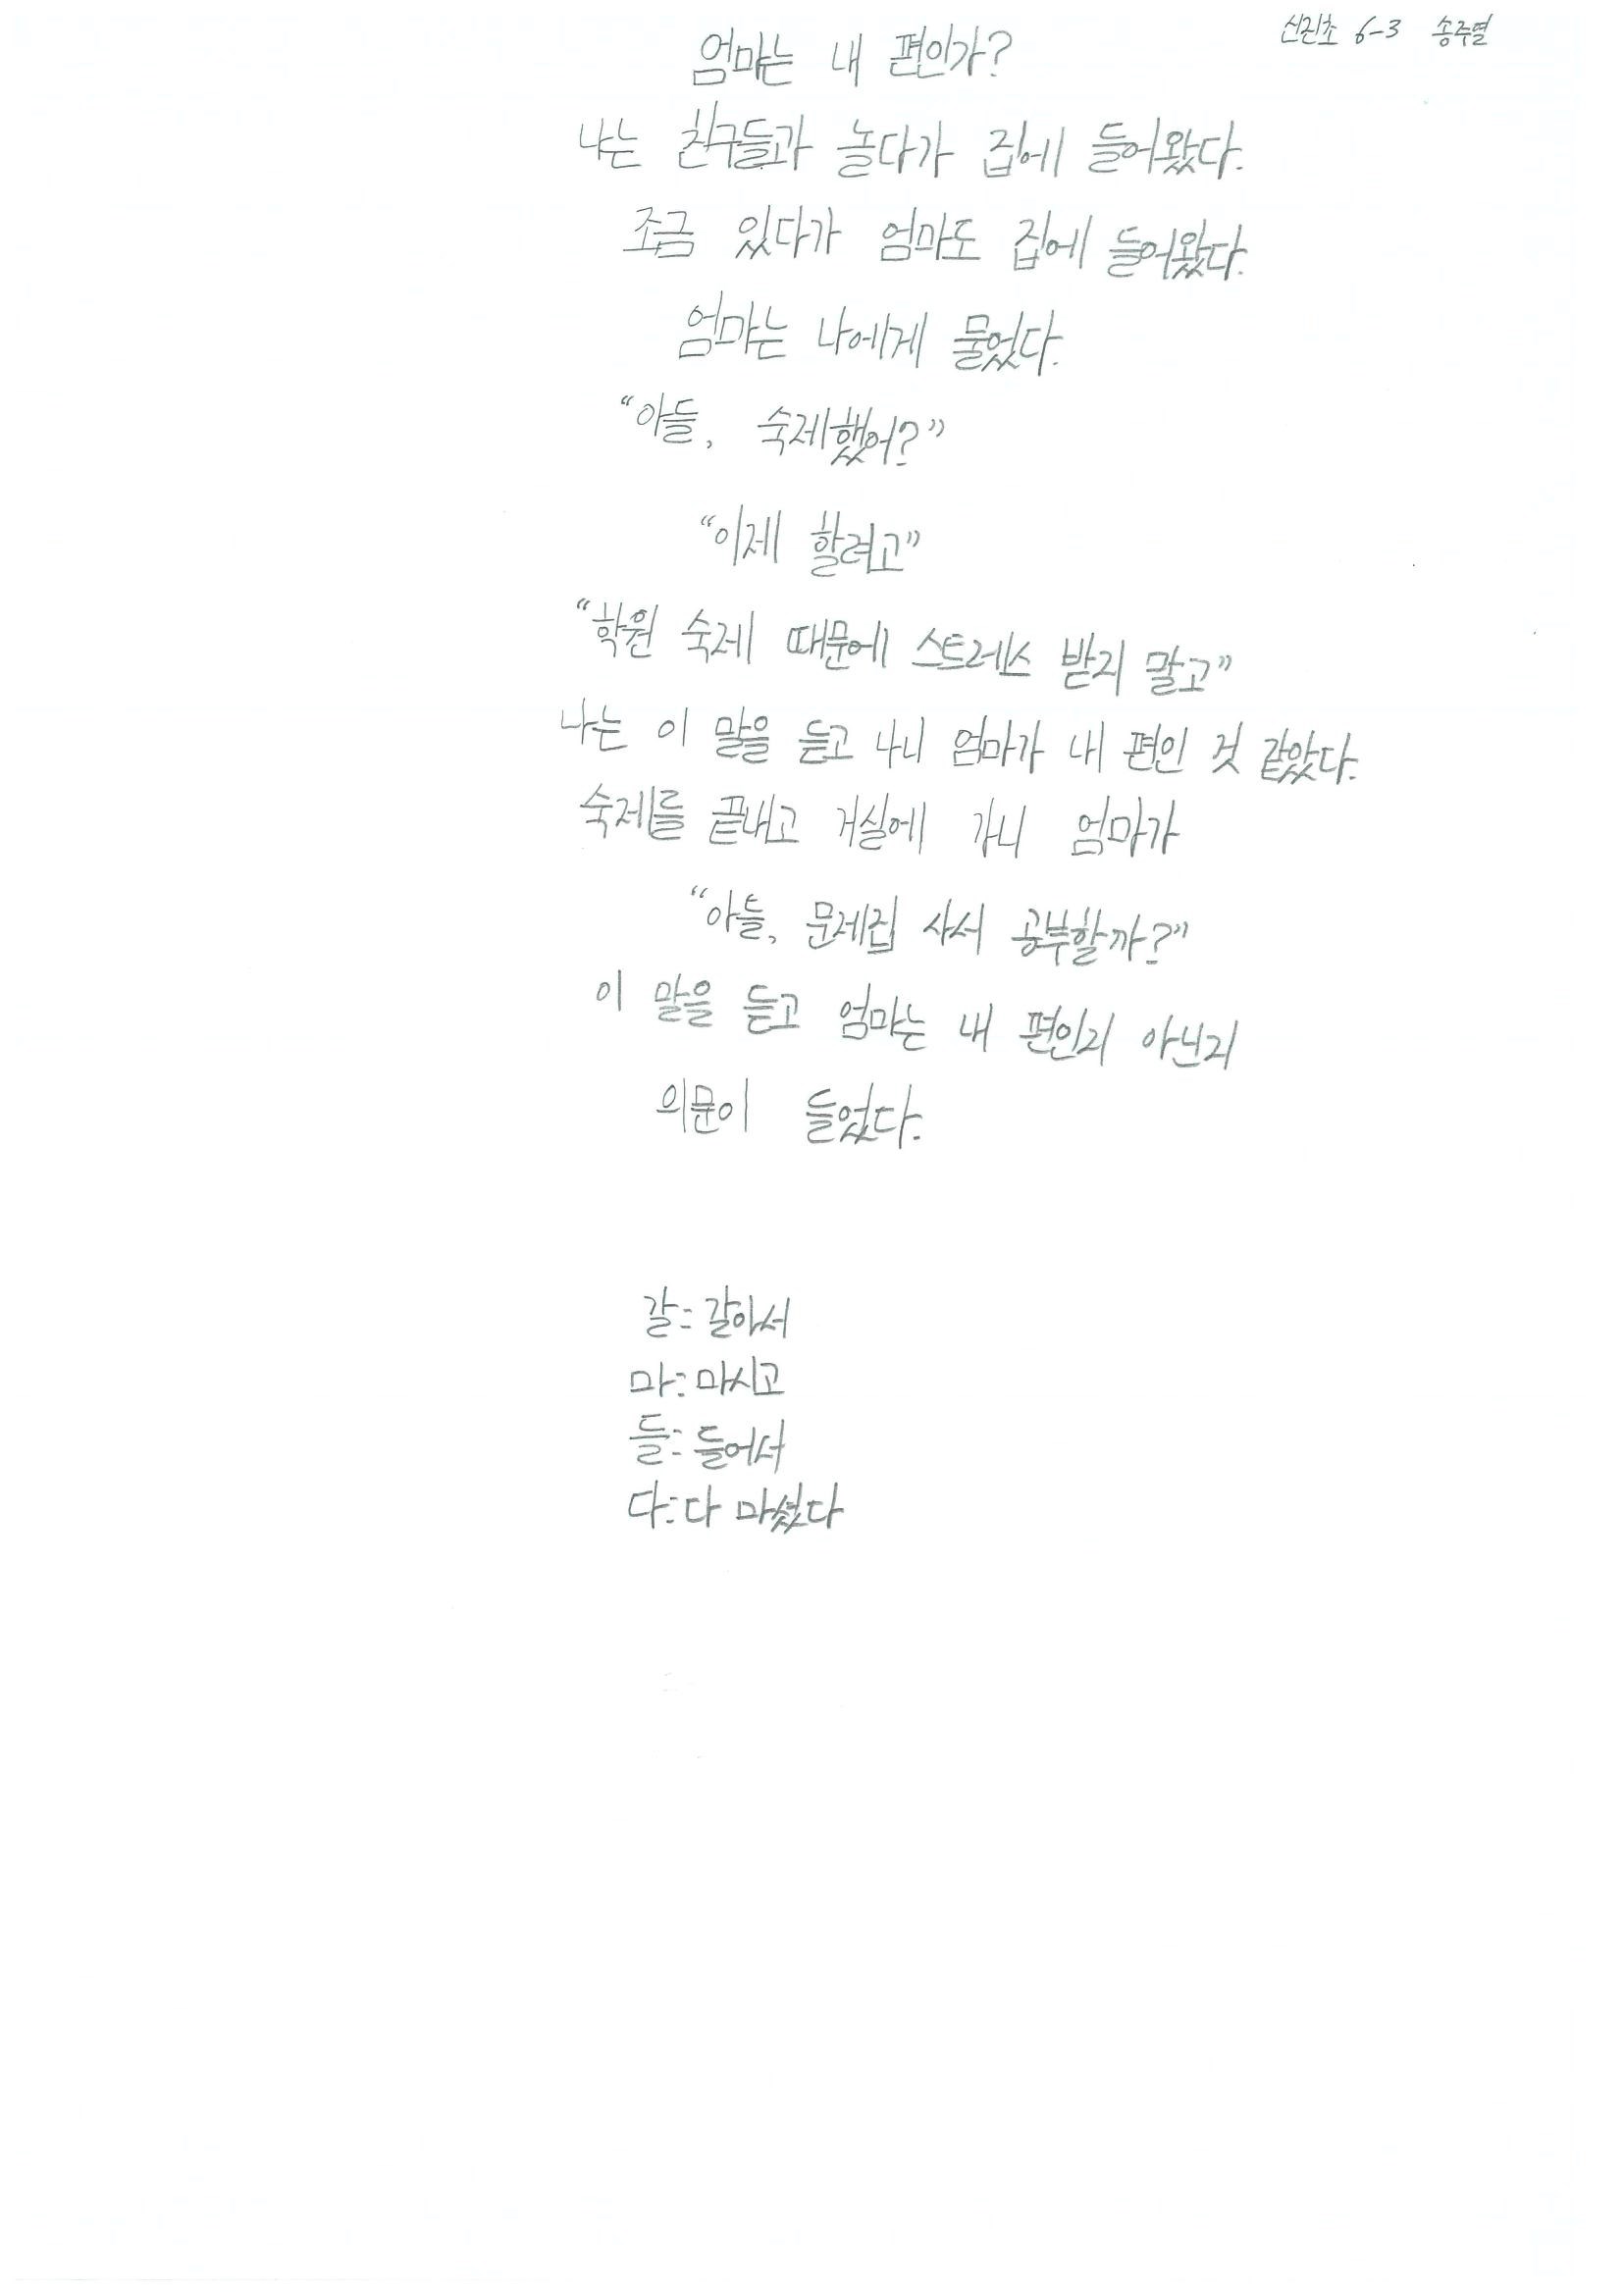 신진초 6-3 송주열
엄마는 내 편인가?
나는 친구들과 놀다가 집에 들어왔다.
조금 있다가 엄마도 집에 들어왔다.
엄마는 나에게 물었다.
“아들, 숙제했어?”
“이제 할려고”
“학원 숙제 때문에 스트레스 받지 말고”
나는 이 말을 듣고 나니 엄마가 내 편인 것 같았다.
숙제를 끝내고 거실에 가니 엄마가
“아들, 문제집 사서 공부할까?”
이 말을 듣고 엄마는 내 편인지 아닌지
의문이 들었다.
갈: 갈아서
마: 마시고
들: 들어서
다: 다 마셨다